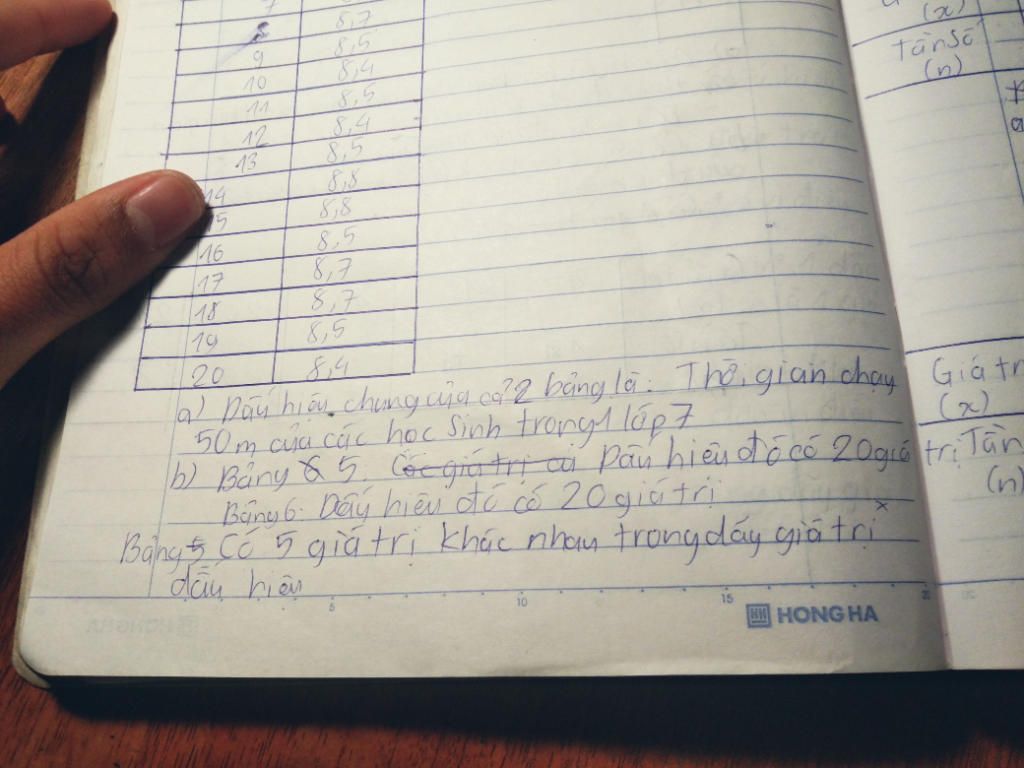 7
8 8,7
9 8,5
10 8,4
11 8,5
12 8,4
13 8,5
14 8,8
15 8,8
16 8,5
17 8,7
18 8,7
19 8,5
20 8,4
a) Dấu hiệu chung của cả 2 bảng là: Thời gian chạy
50m của các học sinh trong 1 lớp 7
b) Bảng 5. Các giá trị củ Dấu hiệu đó có 20 giá trị
Bảng 6: Dấu hiệu đó có 20 giá trị
Bảng 5 Có 5 giá trị khác nhau trong dấy giá trị
dấu hiệu
5 10 15 20
HONG HA
(x)
Tần số
(n)
Giá tr
(x)
Tần
(n)